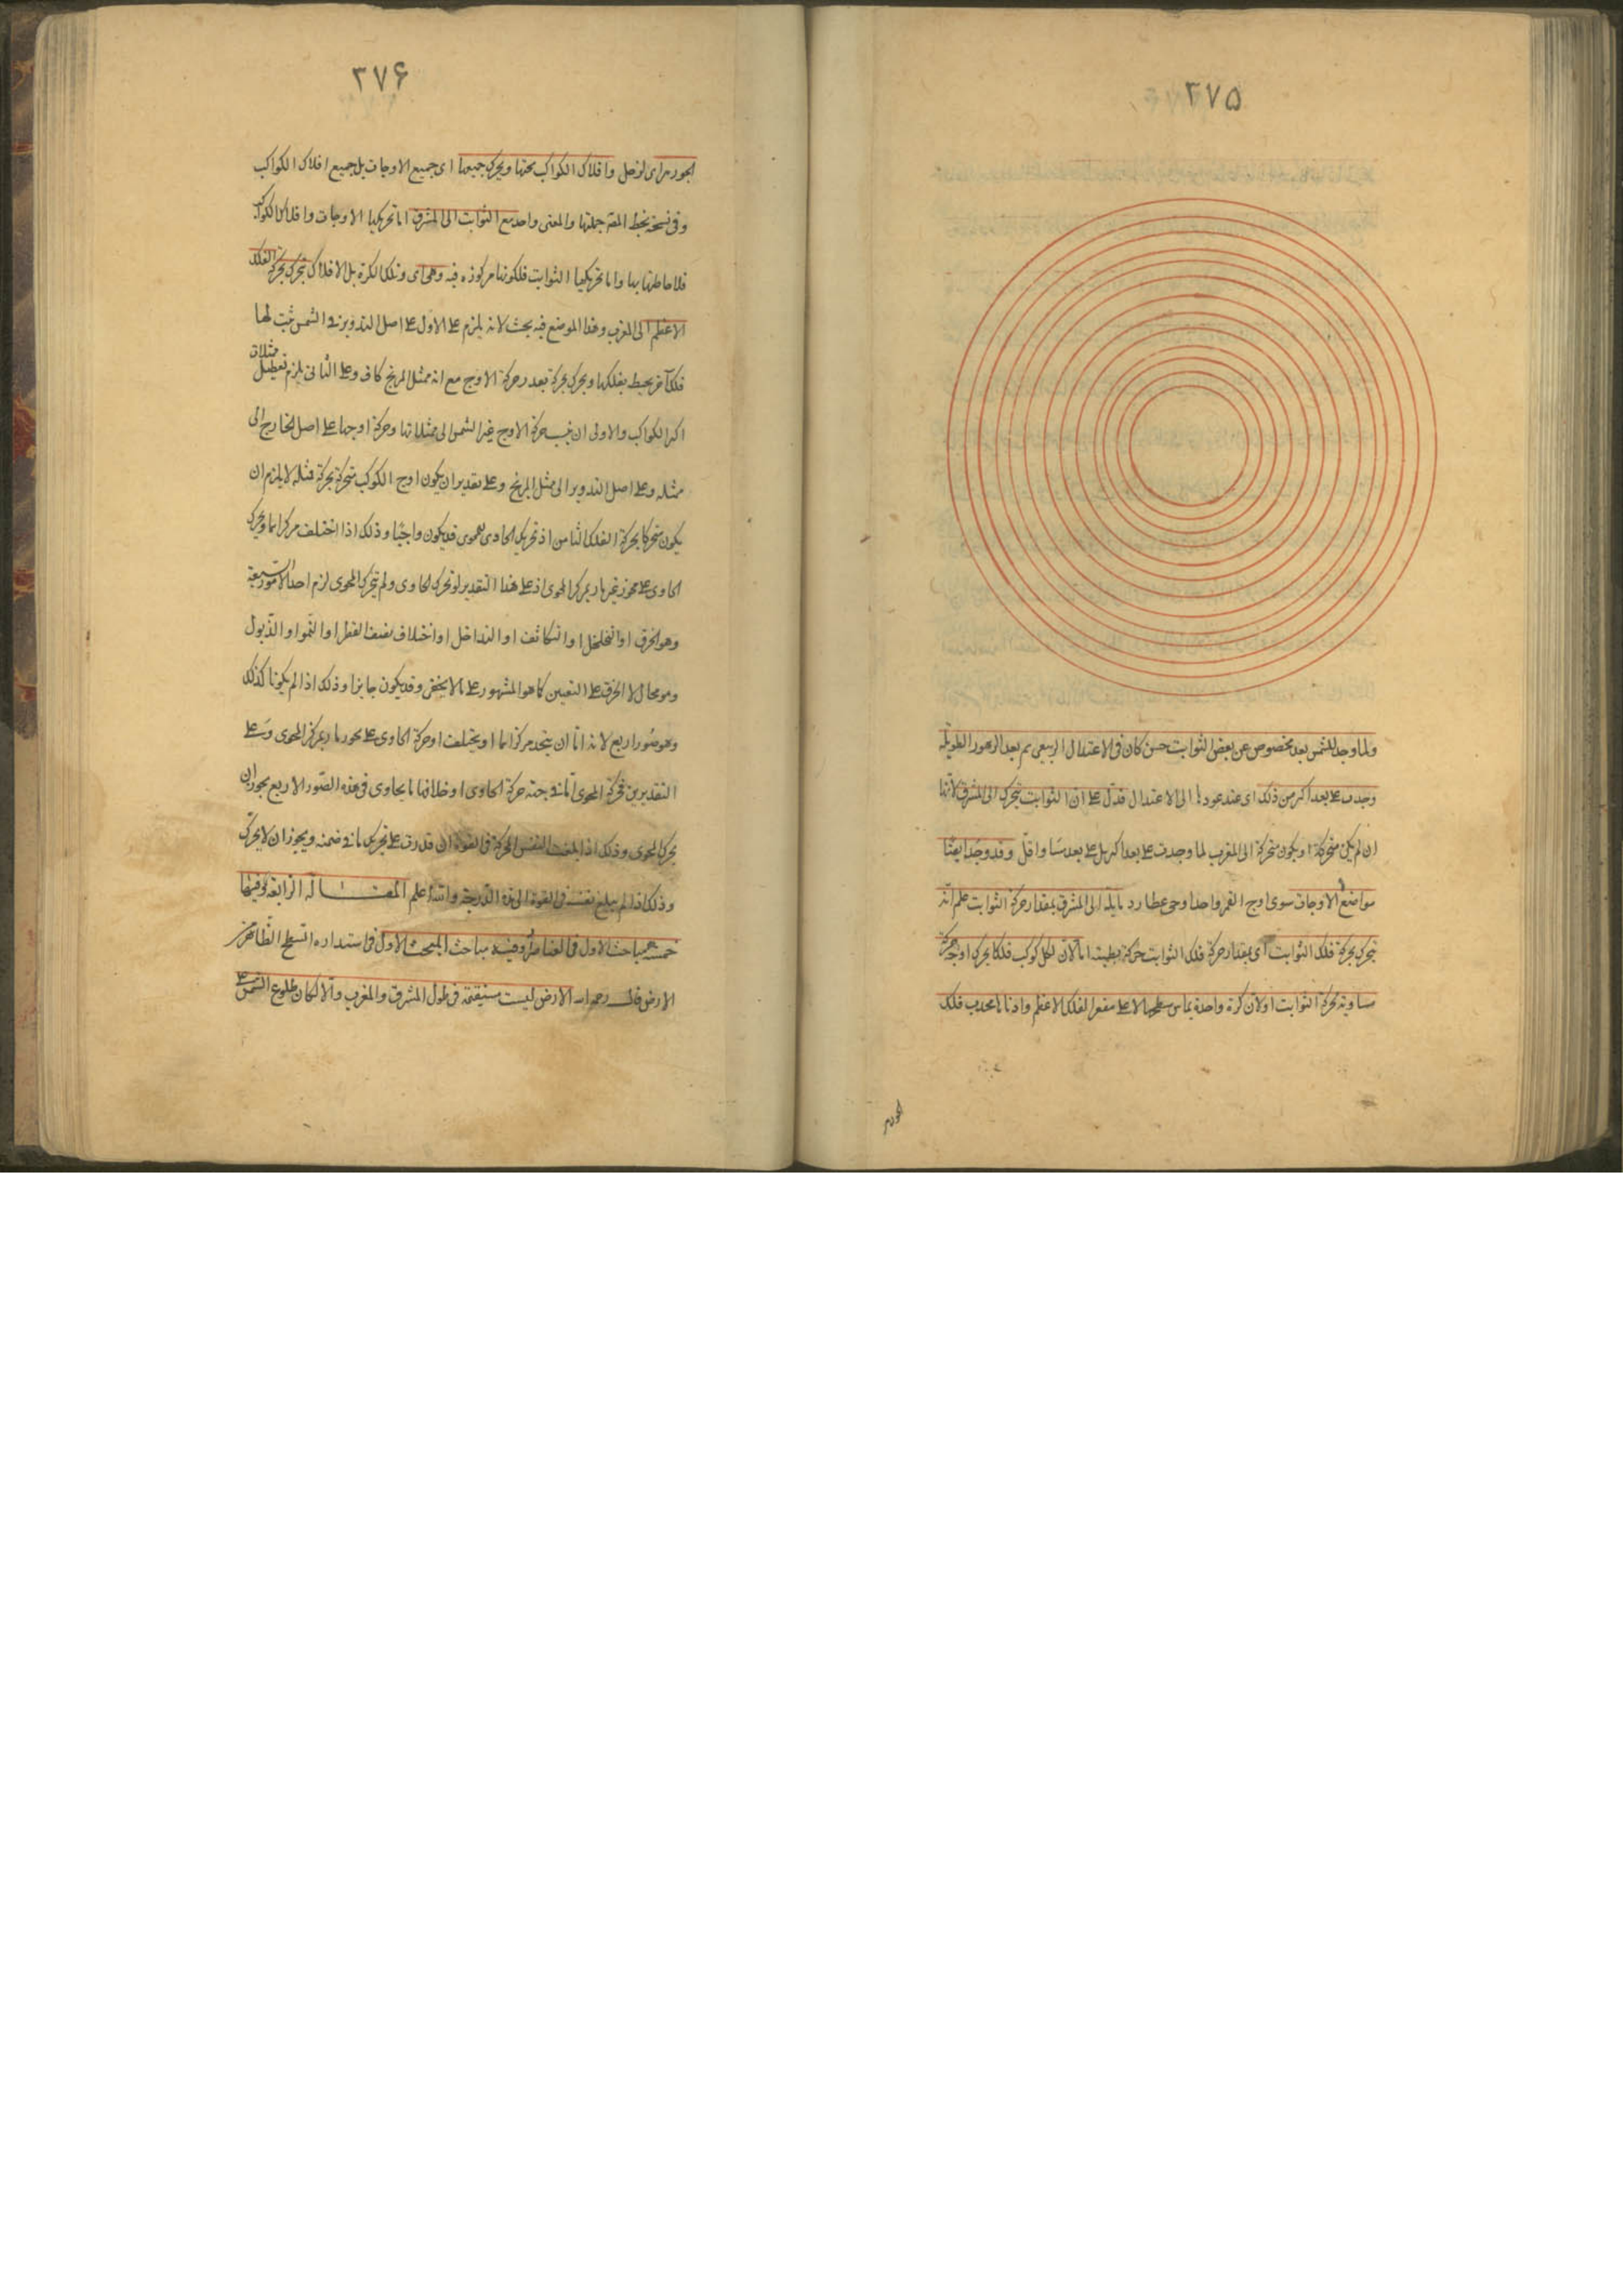 ۲۷۵
ولما وجد للشمس بعد مخصوص عن بعض الثوابت حين كان فى الاعتدال الربيعى ثم بعد الدهور الطويلة
وجدت على بعد اكثر من ذلك اى عند عودها الى الاعتدال فدل على ان الثوابت تتحرك الى المشرق لانها
ان لم يكن متحركة او يكون متحركة الى المغرب لما وجدت على بعد اكثر بل على بعد مساو اقل وقد وجد ايضا
مواضع الاوجات سوى اوج القمر واحد اوجى عطارد مايلة الى المشرق بمقدار حركة الثوابت علم انه
يتحرك بحركة فلك الثوابت اى بمقدار حركة فلك الثوابت حركة بطيئة اما لان لكل كوكب فلكا يحرك اوجه حركة
مساوية لحركة الثوابت او لان كرة واحدة يماس سطحها الاعلى مقعر الفلك الاعظم وادناها محدب فلك
۲۷۶
الجوزهر اى لزحل وافلاك الكواكب تحتها ويحرك جميعها اى جميع الاوجات بل جميع افلاك الكواكب
وفى نسخة بخط المص جملتها والمعنى واحد مع الثوابت الى المشرق اما تحريكها الاوجات وافلاك الكواكب
فلاحاطتها بها واما تحريكها الثوابت فلكونها مركوزه فيه وهى اى وتلك الكرة بل الافلاك تتحرك بحركة الفلك
الاعظم الى المغرب وهذا الموضع فيه بحث لانه يلزم على الاول على اصل التدوير فى الشمس ثبت لها
فلك آخر يحيط بفلكها ويحرك بحركة بعد حركة الاوج مع ان ممثل المريخ كاف وعلى الثانى يلزم تعطيل ممثلات
اكثر الكواكب والاولى ان ينسب حركة الاوج غير الشمس الى ممثلاتها وحركة اوجها على اصل الخارج الى
ممثله وعلى اصل التدوير الى ممثل المريخ وعلى تقدير ان يكون اوج الكوكب متحركة بحركة ممثله لا يلزم ان
يكون متحركا بحركة الفلك الثامن اذ تحريك الحاوى للمحوى قد يكون واجبا وذلك اذا اختلف مركزاهما ويحرك
الحاوى على محور غير مار بمركز المحوى اذ على هذا التقدير لو تحرك الحاوى ولم يتحرك المحوى لزم احد الامور السبعة
وهو الخرق او التخلخل او التكاثف او التداخل او اختلاف نصف القطر او النمو او الذبول
وهو محال الا الخرق على التعيين كما هو المشهور على ما لا يخفى وقد يكون جايزا وذلك اذا لم يكونا كذلك
وهو صور اربع لانه اما ان يتحد مركزاهما او يختلف او حركة الحاوى على محور مار بمركز المحوى وعلى
التقديرين فحركة المحوى اما فى جهة حركة الحاوى او خلافها ما يحاوى فى هذه الصور الاربع يجوز ان
يحرك المحوى وذلك اذا بلغت النفس المحركة فى القوة ان قدرت على تحريك ما فى ضمنه ويجوز ان لا يحرك
وذلك اذا لم يبلغ نفسه فى القوة الى هذه الدرجة والله اعلم المقالة الرابعة وفيها
خمسة مباحث الاول فى العناصر وفيه مباحث المبحث الاول فى استداره السطح الظاهر من
الارض قال رحمه الله الارض ليست مستقيمة فى طول المشرق والمغرب والا لكان طلوع الشمس على